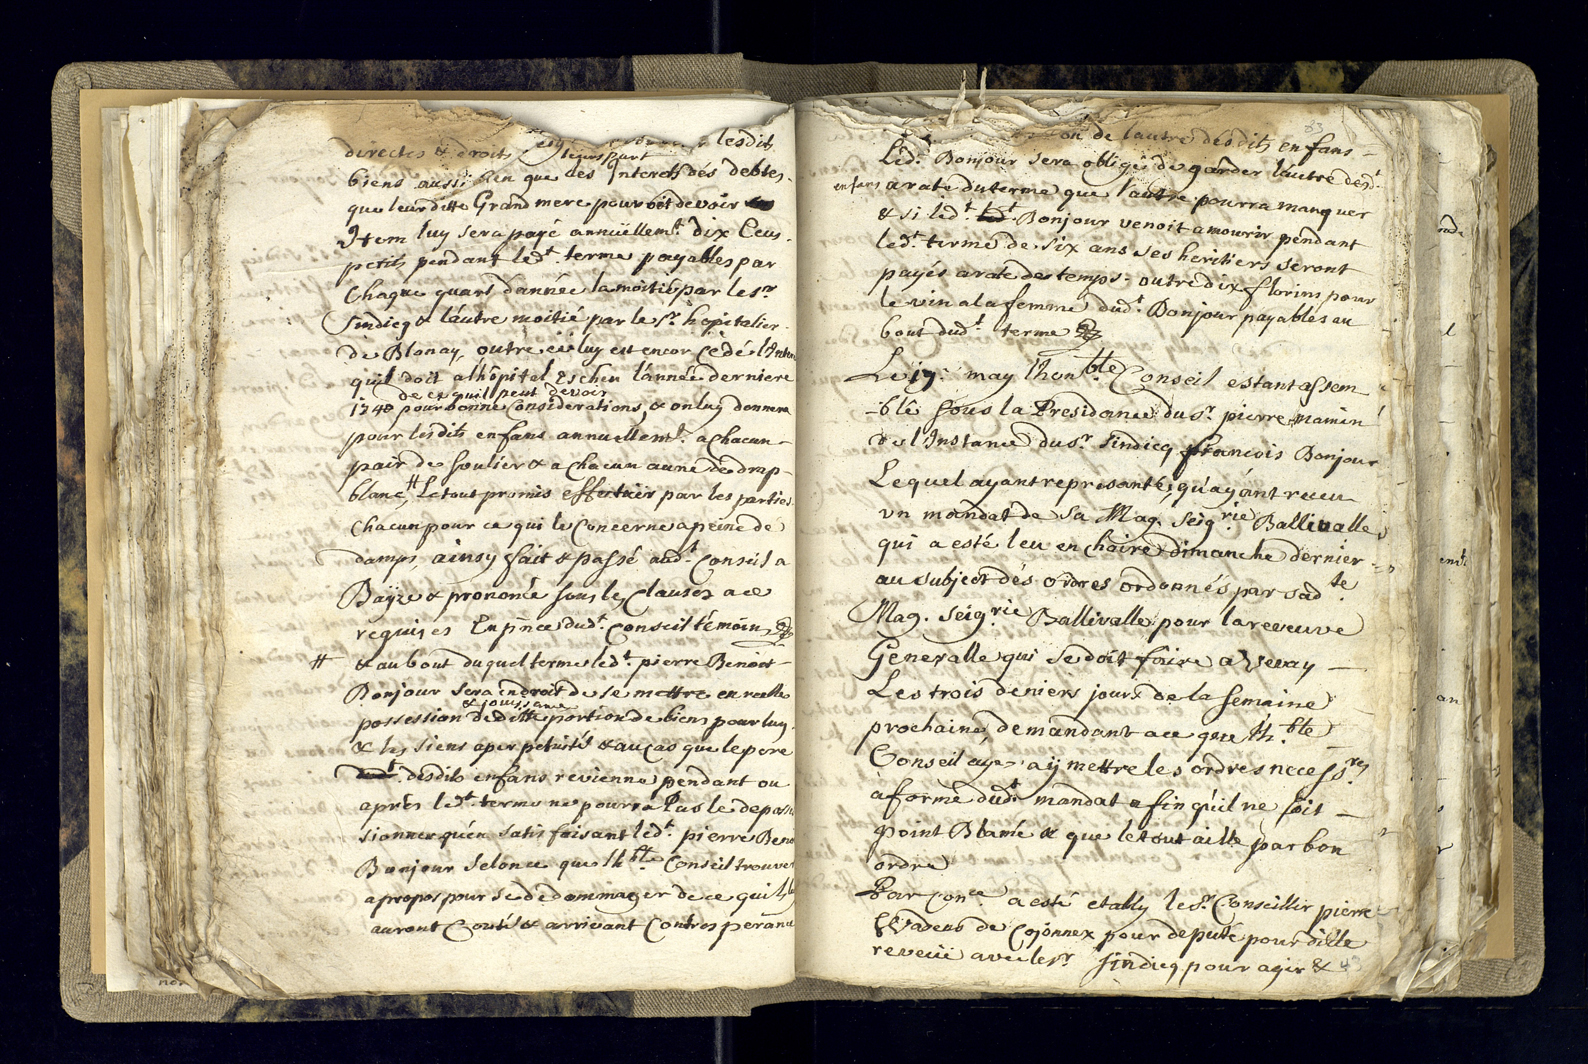 lesdits
directes & droits
leurs part
biens aussi bien que des Interests dés debtes
que leur ditte Grand mere pourroit devoir
Item luy sera payé annuëllemt. dix Ecus
petits pendant ledt. terme payables par
Chaque quart d'année la moitié par le sr.
Sindicq & l'autre moitié par le sr. hôpitalier
de Blonay, outre ce luy est encor cedé l'Inter
quil doit a lhôpital escheu l'année derniere
de ce quil peut devoir
1740 pour bonne Considerations, & on luy donnera
pour lesdits enfans annuellemt. a chacun
pair de soulier & a chacun aune de drap
blanc, # Le tout promis effectuër par les parties
chacun pour ce qui le Concerne a peine de
damps, ainsy fait & passé audt. Conseil a
Bayze & prononcé sous les Clauses a ce
requises En p̃nce dudt. Conseil témoins
# & au bout duquel terme ledt. pierre Benoit
Bonjour sera en droit de se mettre en reelle
& jouissance
possession de ditte portion de biens pour luy
& les siens a perpetuité & au cas que le pere
desdits enfans revienne pendant ou
après ledt. terme ne pourra Pas le deposse
sionner qu'en satisfaisant ledt. pierre Beno
Bonjour selon ce que lh.ble Conseil trouver
a propos pour se dedommager de ce quils luy
auront Couté & arrivant Contre esperance
83
ou de l'autre desdits enfans
Ledt. Bonjour sera obligé de garder l'autre desdt.
enfans a rate du terme que l'autre pourra manquer
& si ledt. Bonjour venoit a mourir pendant
ledt. terme de six ans ses heritiers seront
payés a rate des temps, outre dix florins pour
le vin a la femme dudt. Bonjour payables au
bout dudt. terme
Le 17: may lhonble Conseil estant assem
blé sous la Presidance du sr. pierre mamin
de l'Instance du sr. Sindicq francois Bonjour
Lequel ayant representé, qu'ayant receu
un mandat de sa Mag. Seig.rie Ballivalle,
qui a esté leu en chaire dimanche dernier
au subject dés ordres ordonnés par sadte
Mag. Seig.rie Ballivalle pour la reveuve
Generalle qui se doit faire a Vevay
Les trois deniers jours de la semaine
prochaine, demandant a ce que lh.ble
Conseil aye a ij mettre les ordres necessres
à forme dudt. mandat a fin qu'il ne soit
point Blamé & que le tout aille par bon
ordre
Par Conce. a esté etably le sr. Conseillir pierre
de Cojonnex pour deputé pour ditte
reveüe avec le sr. Sindicq pour agir &
43